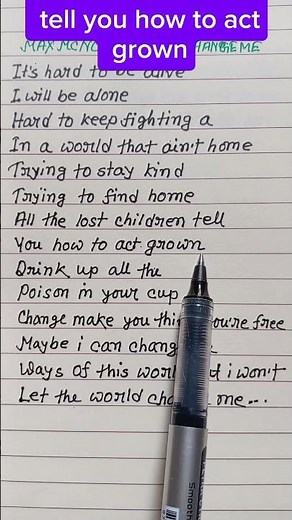 tell you how to act
grown
MAX MCNO
It's hard to be alive
I will be alone
Hard to keep fighting a
In a world that ain't home
Trying to stay kind
Trying to find home
All the lost children tell
You how to act grown
Drink up all the
Poison in your cup
Change make you thi you're free
Maybe i can chang
Ways of this worl d i won't
Let the world cha me...
Smooth